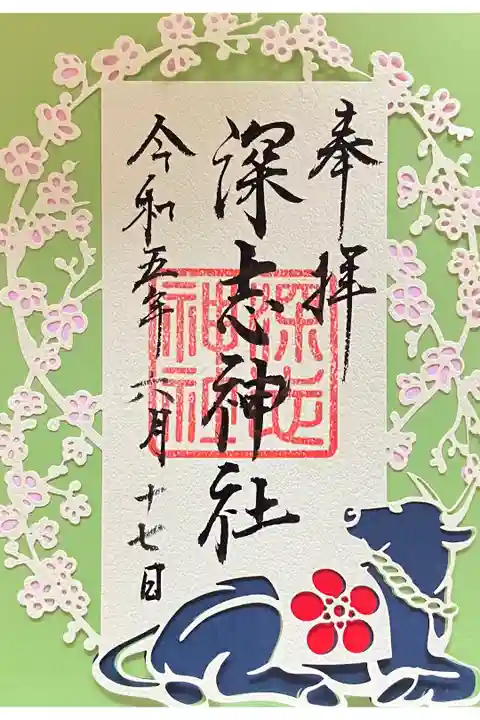 奉拝
深志神社
令和五年六月十七日
深志神社